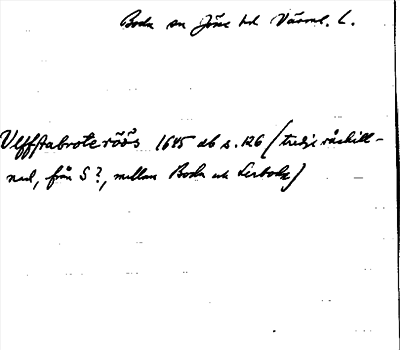 Boda sn Jösse hd Värml. L.
Ulffstabroteröös 1645 db s. 126 (tredje råskill-
nad, från S?, mellan Boda och Lerboda)